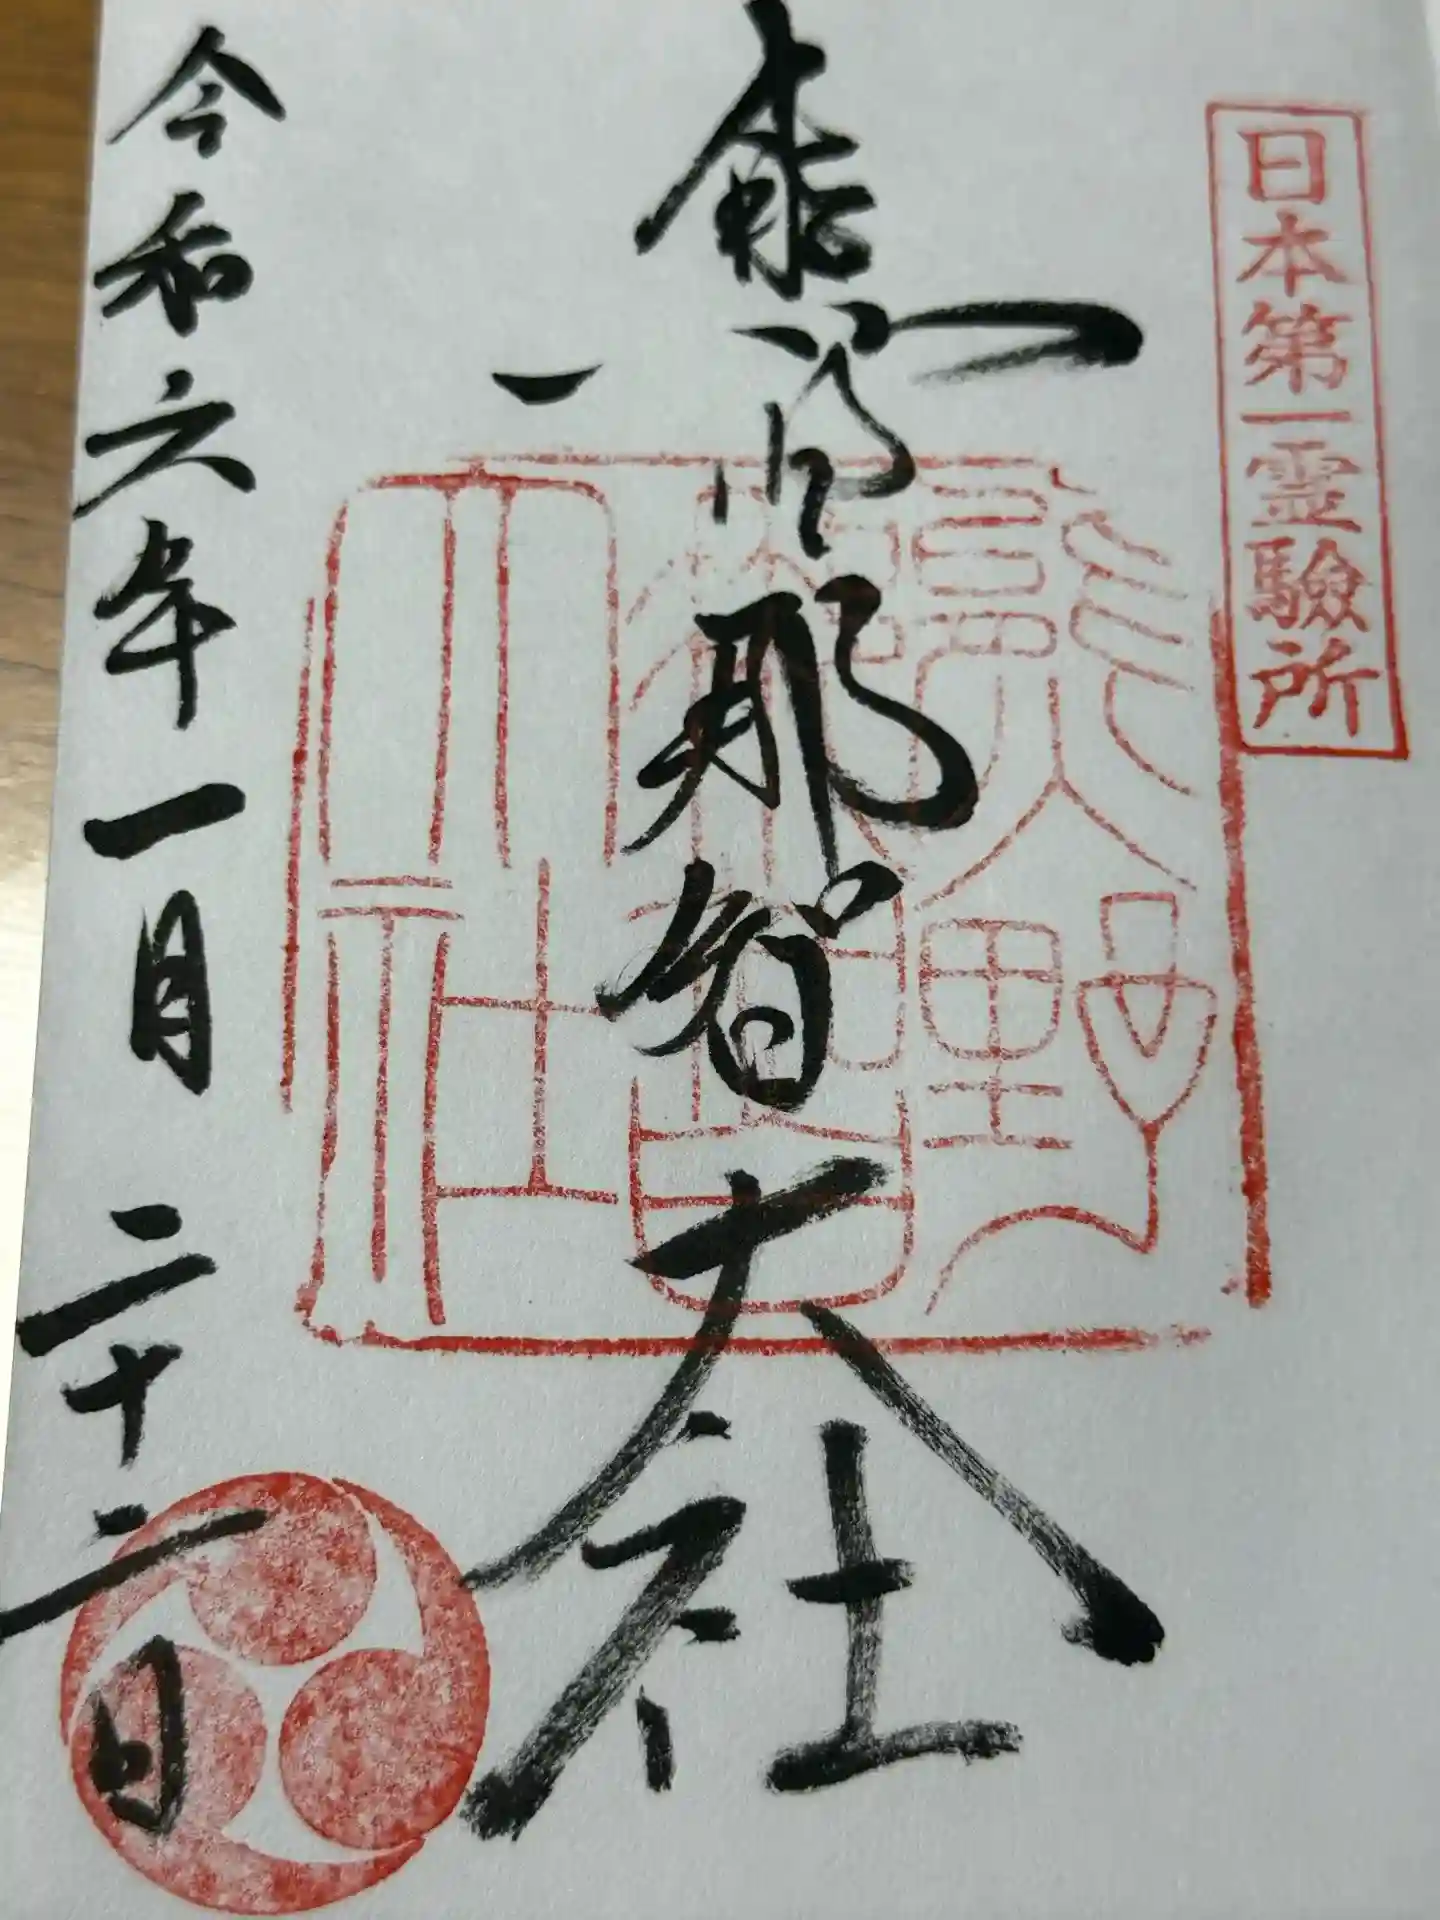 日本第一霊驗所
熊野那智大社
熊野那智大社
令和六年一月二十二日